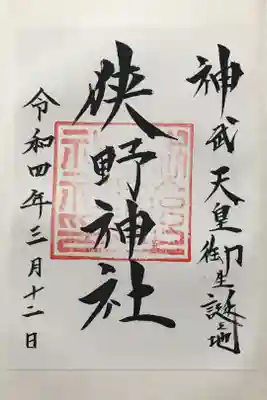 神武天皇御生誕之地
狭野神社
令和四年三月十二日